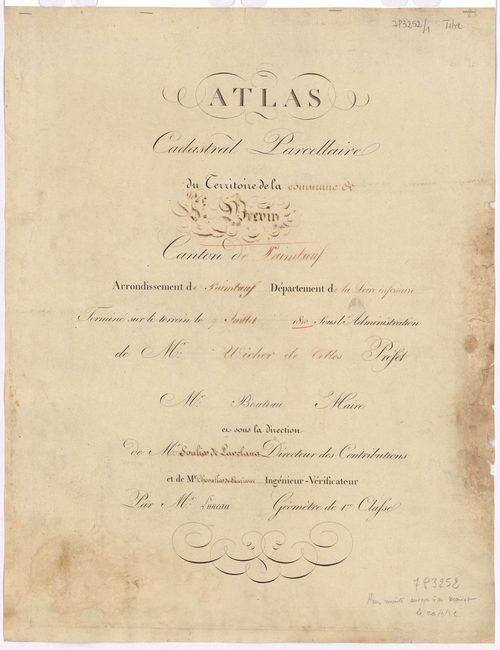 7P3252/1 Titre
ATLAS
Cadastral Parcellaire
du Territoire de la commune de
St. Brevin
Canton de Paimbœuf
Arrondissement de Paimbœuf Département de la Loire inférieure
Terminé sur le terrein le 9 Juillet 1810 Sous l'Administration
de Mr. de Celles Préfet
Mr. Bouteau Maire
et sous la direction
de Mr. Directeur des Contributions
et de Mr. Chevalier Ingénieur-Vérificateur
Par Mr. Luneau Géomètre de 1re Classe
7P3252